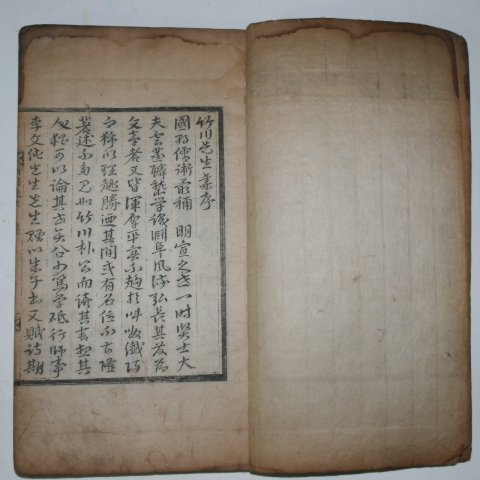 竹川先生集序
國朝儒術最稱 明宣之世一時賢士大
夫雲蒸鱗集學後闕阜風流弘長其發為
文章者又皆渾厚平實不趨於啽嚘纖巧
而務以理趣勝迺其間或有名位不甚隆
著述不多見如竹川朴公而讀其書想其
人猶可以論其世矣公少篤學砥行師事
李文純先生先生贈以朱子書又賦詩期